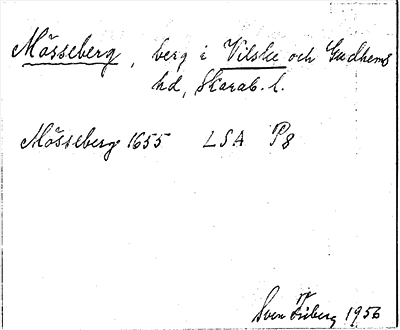 Mösseberg, berg i Vilske och Gudhems
hd, Skarab. l.
Mösseberg 1655 LSA P8
Sven Friberg 1956